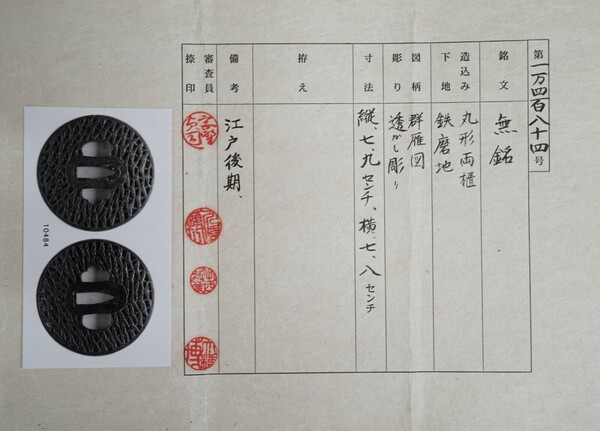 第一万四百八十四号
銘文 無銘
造込み 丸形両櫃
下地 鉄磨地
図柄 群雁図
彫り 透かし彫り
寸法 縦、七、九センチ、横、七、八センチ
拵え
備考 江戸後期、
審査員
捺印
10484